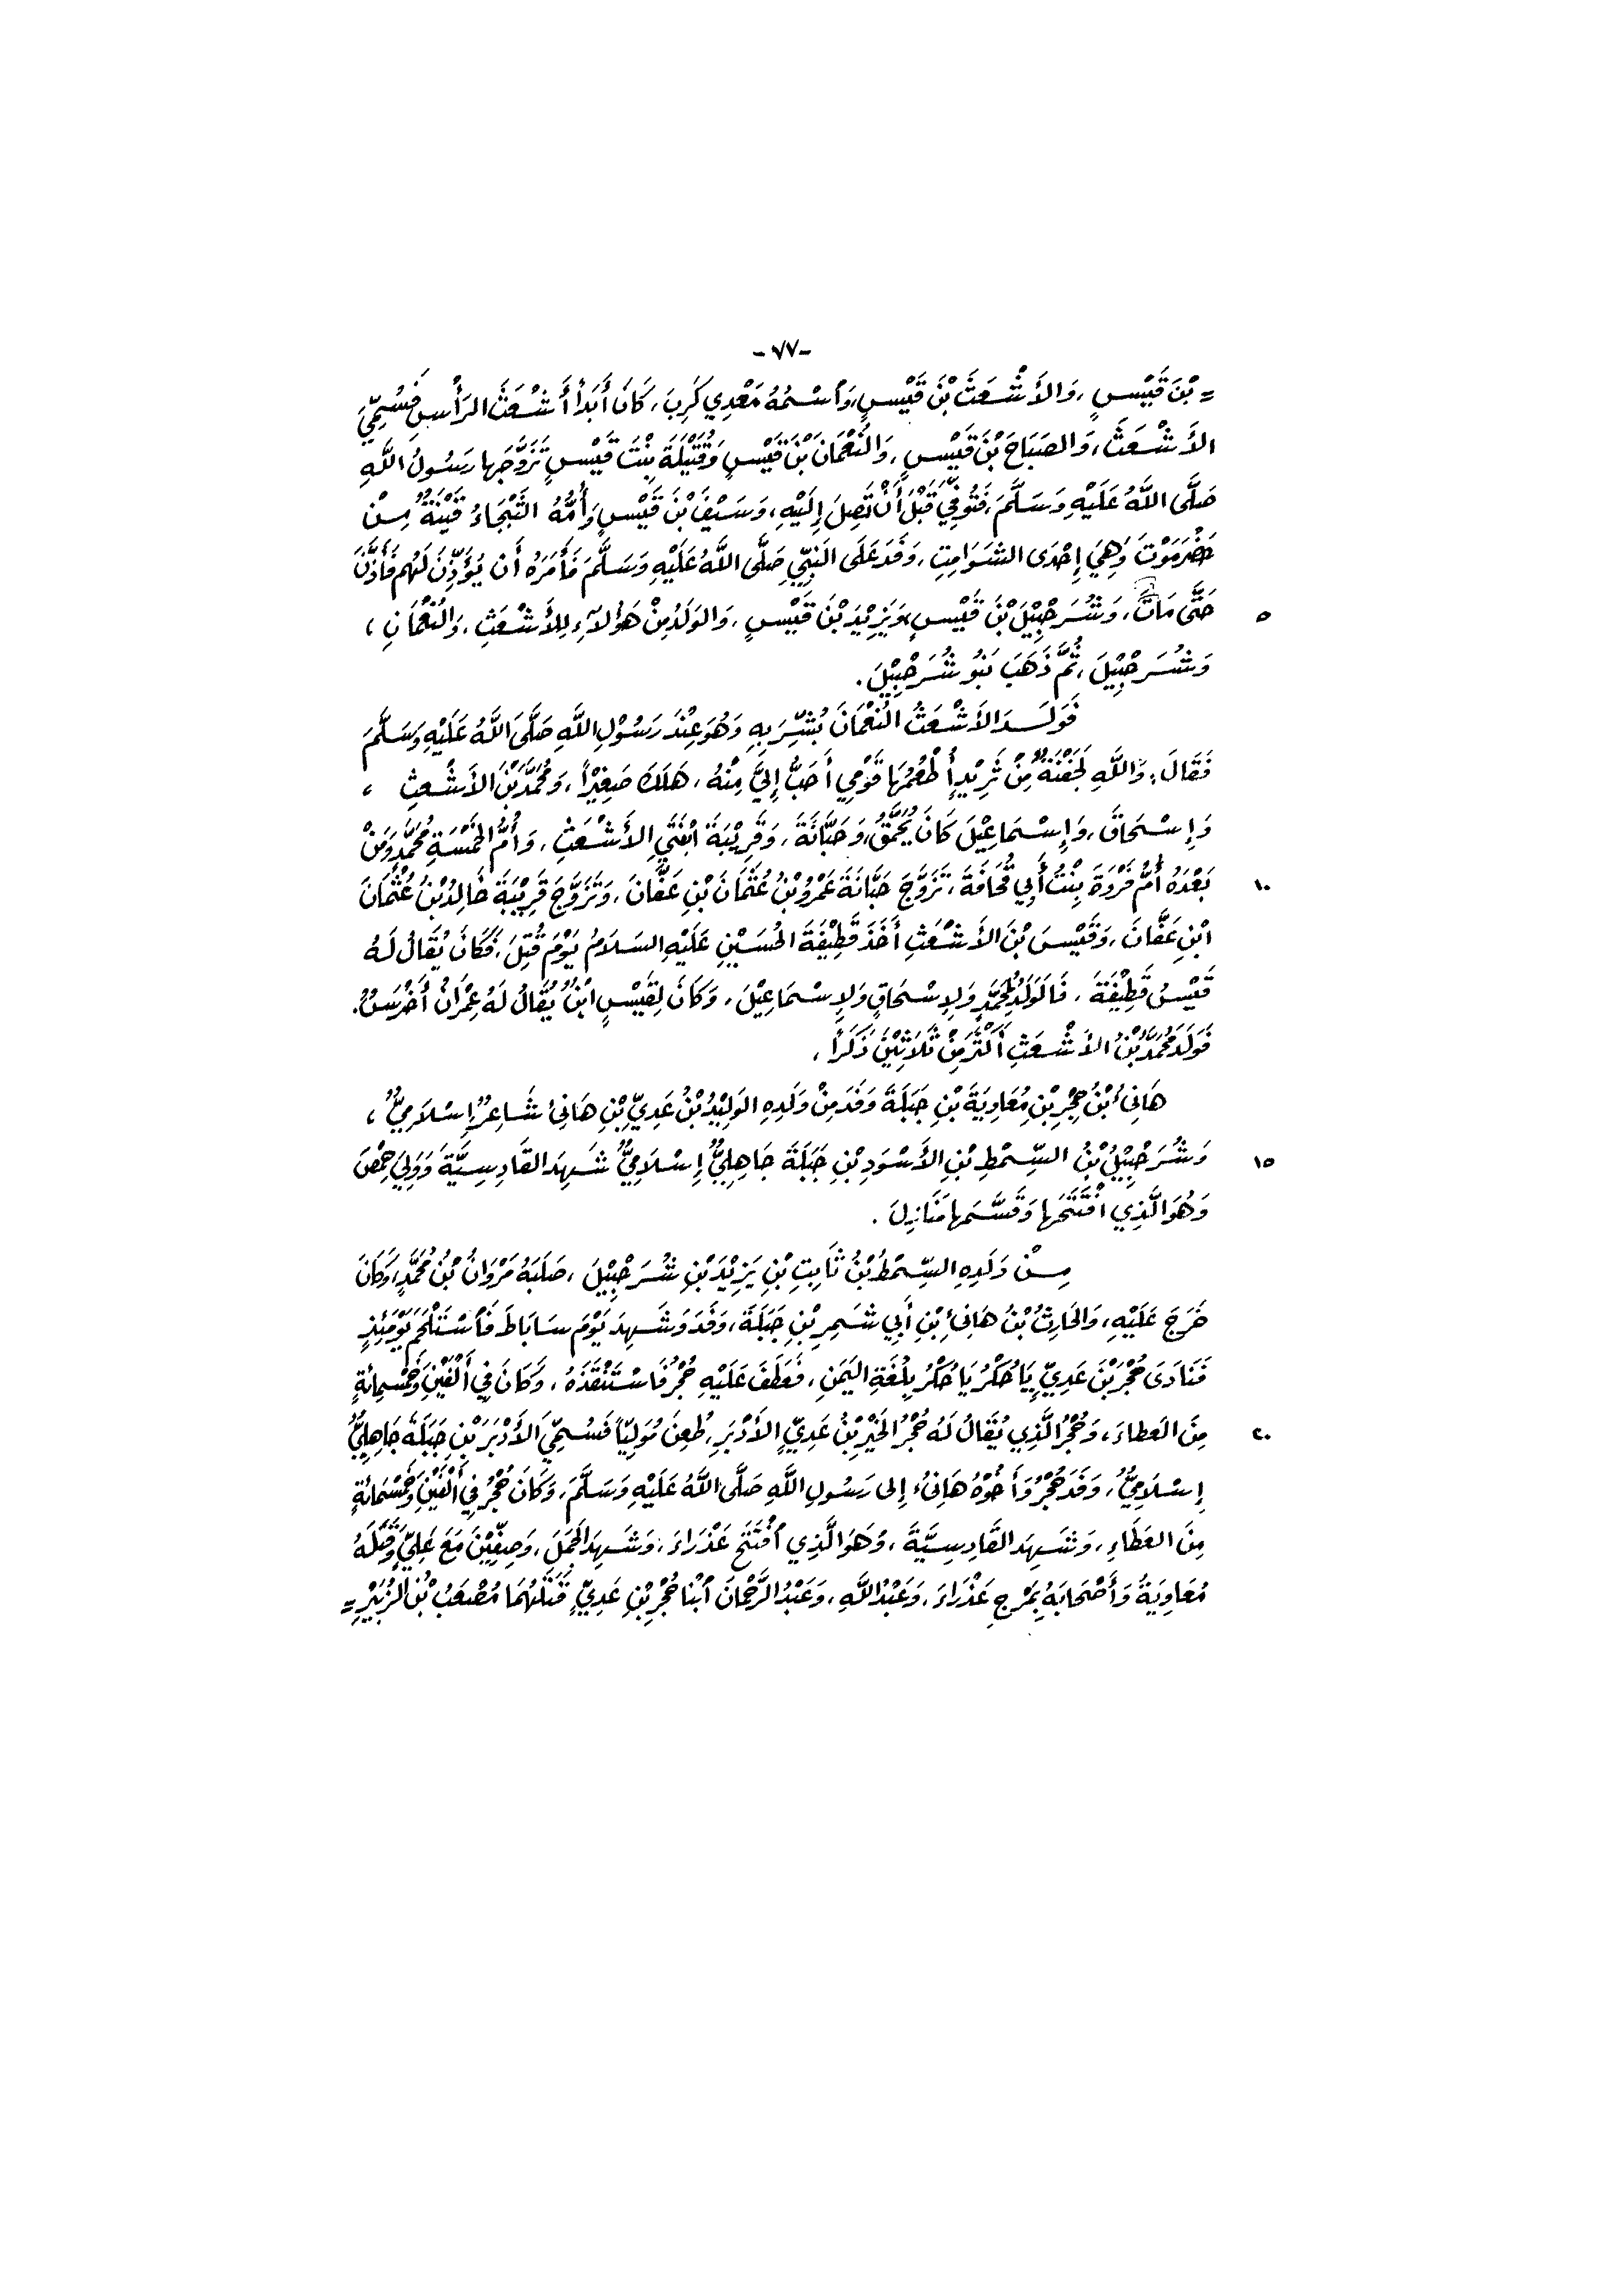 -٧٧-
= بْنَ قَيْسٍ، وَالأَشْعَثَ بْنَ قَيْسٍ، وَاسْمُهُ مَعْدِي كَرِبَ، كَانَ أَبَداً أَشْعَثَ الرَأْسِ فَسُمِّيَ
الأَشْعَثَ، وَالصَبَاحَ بْنَ قَيْسٍ، وَالنُعْمَانَ بْنَ قَيْسٍ وَقُتَيْلَةَ بِنْتَ قَيْسٍ تَزَوَّجَها رَسُولُ اللَّهِ
صَلَّى اللَّهُ عَلَيْهِ وَسَلَّمَ، فَتُوفِّيَ قَبْلَ أَنْ تَصِلَ إِلَيْهِ، وَسَيْفَ بْنَ قَيْسٍ وَأُمُّهُ الثَّبْجَاءُ قَيْنَةٌ مِنْ
حَضْرَمَوْتَ وَهِيَ إِحْدَى الشَوَامِتِ، وَفَدَ عَلَى النَبِيِّ صَلَّى اللَّهُ عَلَيْهِ وَسَلَّمَ فَأَمَرَهُ أَن يُؤَذِّنَ لَهُم فَأَذَّنَ
٥ حَتَّى مَاتَ، وَشُرَحْبِيْلَ بْنَ قَيْسٍ، وَيَزِيْدَ بْنَ قَيْسٍ، وَالوَلَدُ مِنْ هَؤُلاَءِ لِلأَشْعَثِ، وَالنُعْمَانِ،
وَشُرَحْبِيْلَ، ثُمَّ ذَهَبَ بَنُو شُرَحْبِيْلَ.
فَوَلَدَ الأَشْعَثُ النُعْمَانَ بُشِّرَ بِهِ وَهُوَ عِنْدَ رَسُوْلِ اللَّهِ صَلَّى اللَّهُ عَلَيْهِ وَسَلَّمَ
فَقَالَ: وَاللَّهِ لَجَفْنَةٌ مِنْ ثَرِيْدٍ أُطْعِمُهَا قَوْمِي أَحَبُّ إِليَّ مِنْهُ، هَلَكَ صَغِيْراً، وَمُحَمَّدَ بْنَ الأَشْعَثِ،
وَإِسْحَاقَ، وَإِسْمَاعِيْلَ كَانَ يُحَمَّقُ، وَحَبَّانَةَ، وَقَرِيْبَةَ ابْنَتَيِ الأَشْعَثِ، وَأُمُّ الخَمْسَةِ مُحَمَّدٍ وَمَنْ
١٠ بَعْدَهُ أُمُّ فَرْوَةَ بِنْتُ أَبِي قُحَافَةَ، تَزَوَّجَ حَبَّانَةَ عَمْرُو بْنُ عُثْمَانَ بْنِ عَفَّانَ، وَتَزَوَّجَ قَرِيْبَةَ خَالِدُ بْنُ عُثْمَانَ
ابْنِ عَفَّانَ، وَقَيْسَ بْنَ الأَشْعَثِ أَخَذَ قَطِيْفَةَ الحُسَيْنِ عَلَيْهِ السَلاَمُ يَوْمَ قُتِلَ، فَكَانَ يُقَالُ لَهُ
قَيْسُ قَطِيْفَةَ، فَالوَلَدُ لِمُحَمَّدٍ وَلإِسْحَاقٍ وَلإِسْمَاعِيْلَ، وَكَانَ لِقَيْسٍ ابْنٌ يُقَالُ لَهُ عِمْرَانُ أَخْرَسُ.
فَوَلَدَ مُحَمَّدُ بْنُ الأَشْعَثِ أَكْثَرَ مِنْ ثَلاَثِيْنَ ذَكَراً،
هَانِئُ بْنُ حُجْرِ بْنِ مُعَاوِيَةَ بْنِ جَبَلَةَ وَفَدَ مِنْ وَلَدِهِ الوَلِيْدُ بْنُ عَدِيِّ بْنِ هَانِئ شَاعِرٌ إِسْلاَمِيٌّ،
١٥ وَشُرَحْبِيْلُ بْنُ السِّمْطِ بْنِ الأَسْوَدِ بْنِ جَبَلَةَ جَاهِلِيٌّ إِسْلاَمِيٌّ شَهِدَ القَادِسِيَّةَ وَوَلِيَ حِمْصَ
وَهُوَ الَّذِي افْتَتَحَها وَقَسَّمَها مَنَازِلَ.
مِنْ وَلَدِهِ السِّمْطُ بْنُ ثَابِتِ بْنِ يَزِيْدَ بْنِ شُرَحْبِيْلَ، صَلَبَهُ مَرْوَانُ بْنُ مُحَمَّدٍ، وَكَانَ
خَرَجَ عَلَيْهِ، وَالحَارِثُ بْنُ هَانِئِ بْنِ أَبِي شَمِرِ بْنِ جَبَلَةَ، وَفَدَ وَشَهِدَ يَوْمَ سَابَاطَ فَاسْتَلْحَمَ يَوْمَئِذٍ
فَنَادَى حُجْرَ بْنَ عَدِيٍّ يَا حُكْرُ يَا حُكْرُ بِلُغَةِ اليَمَنِ، فَعَطَفَ عَلَيْهِ حُجْرٌ فَاسْتَنْقَذَهُ، وَكَانَ فِي أَلْفَيْنِ وَخَمْسِمِائَةٍ
٢٠ مِنَ العَطاءَ، وَحُجْرُ الَّذِي يُقَالُ لَهُ حُجْرُ الخَيْرِ بْنُ عَدِيٍّ الأَدْبَرِ، طُعِنَ مُوَلِيّاً فَسُمِّيَ الأَدْبَرَ بْنِ جَبَلَةَ جَاهِلِيٌّ
إِسْلاَمِيٌّ، وَفَدَ حُجْرٌ وَأَخُوْهُ هَانِئُ إِلى رَسُولِ اللَّهِ صَلَّى اللَّهُ عَلَيْهِ وَسَلَّمَ، وَكَانَ حُجْرُ فِي أَلْفَيْنِ وَخَمْسَمائَةٍ
مِنَ العَطَاءِ، وَشَهِدَ القَادِسِيَّةَ، وَهَوَ الَّذِي افْتَتَحَ عَذْرَاءَ، وَشَهِدَ الجَمَلَ، وَصِفِّيْنَ مَعَ عَلِيٍّ وَقَتَلَهُ
مُعَاوِيَةُ وَأَصْحَابَهُ بِمَرْجِ عَذْرَاءَ، وَعَبْدُ اللَّهِ، وَعَبْدُ الرَّحْمَانَ ابْنا حُجْرِ بْنِ عَدِيٍّ قَتَلَهُمَا مُصْعَبُ بْنُ الزُبَيْرِ =